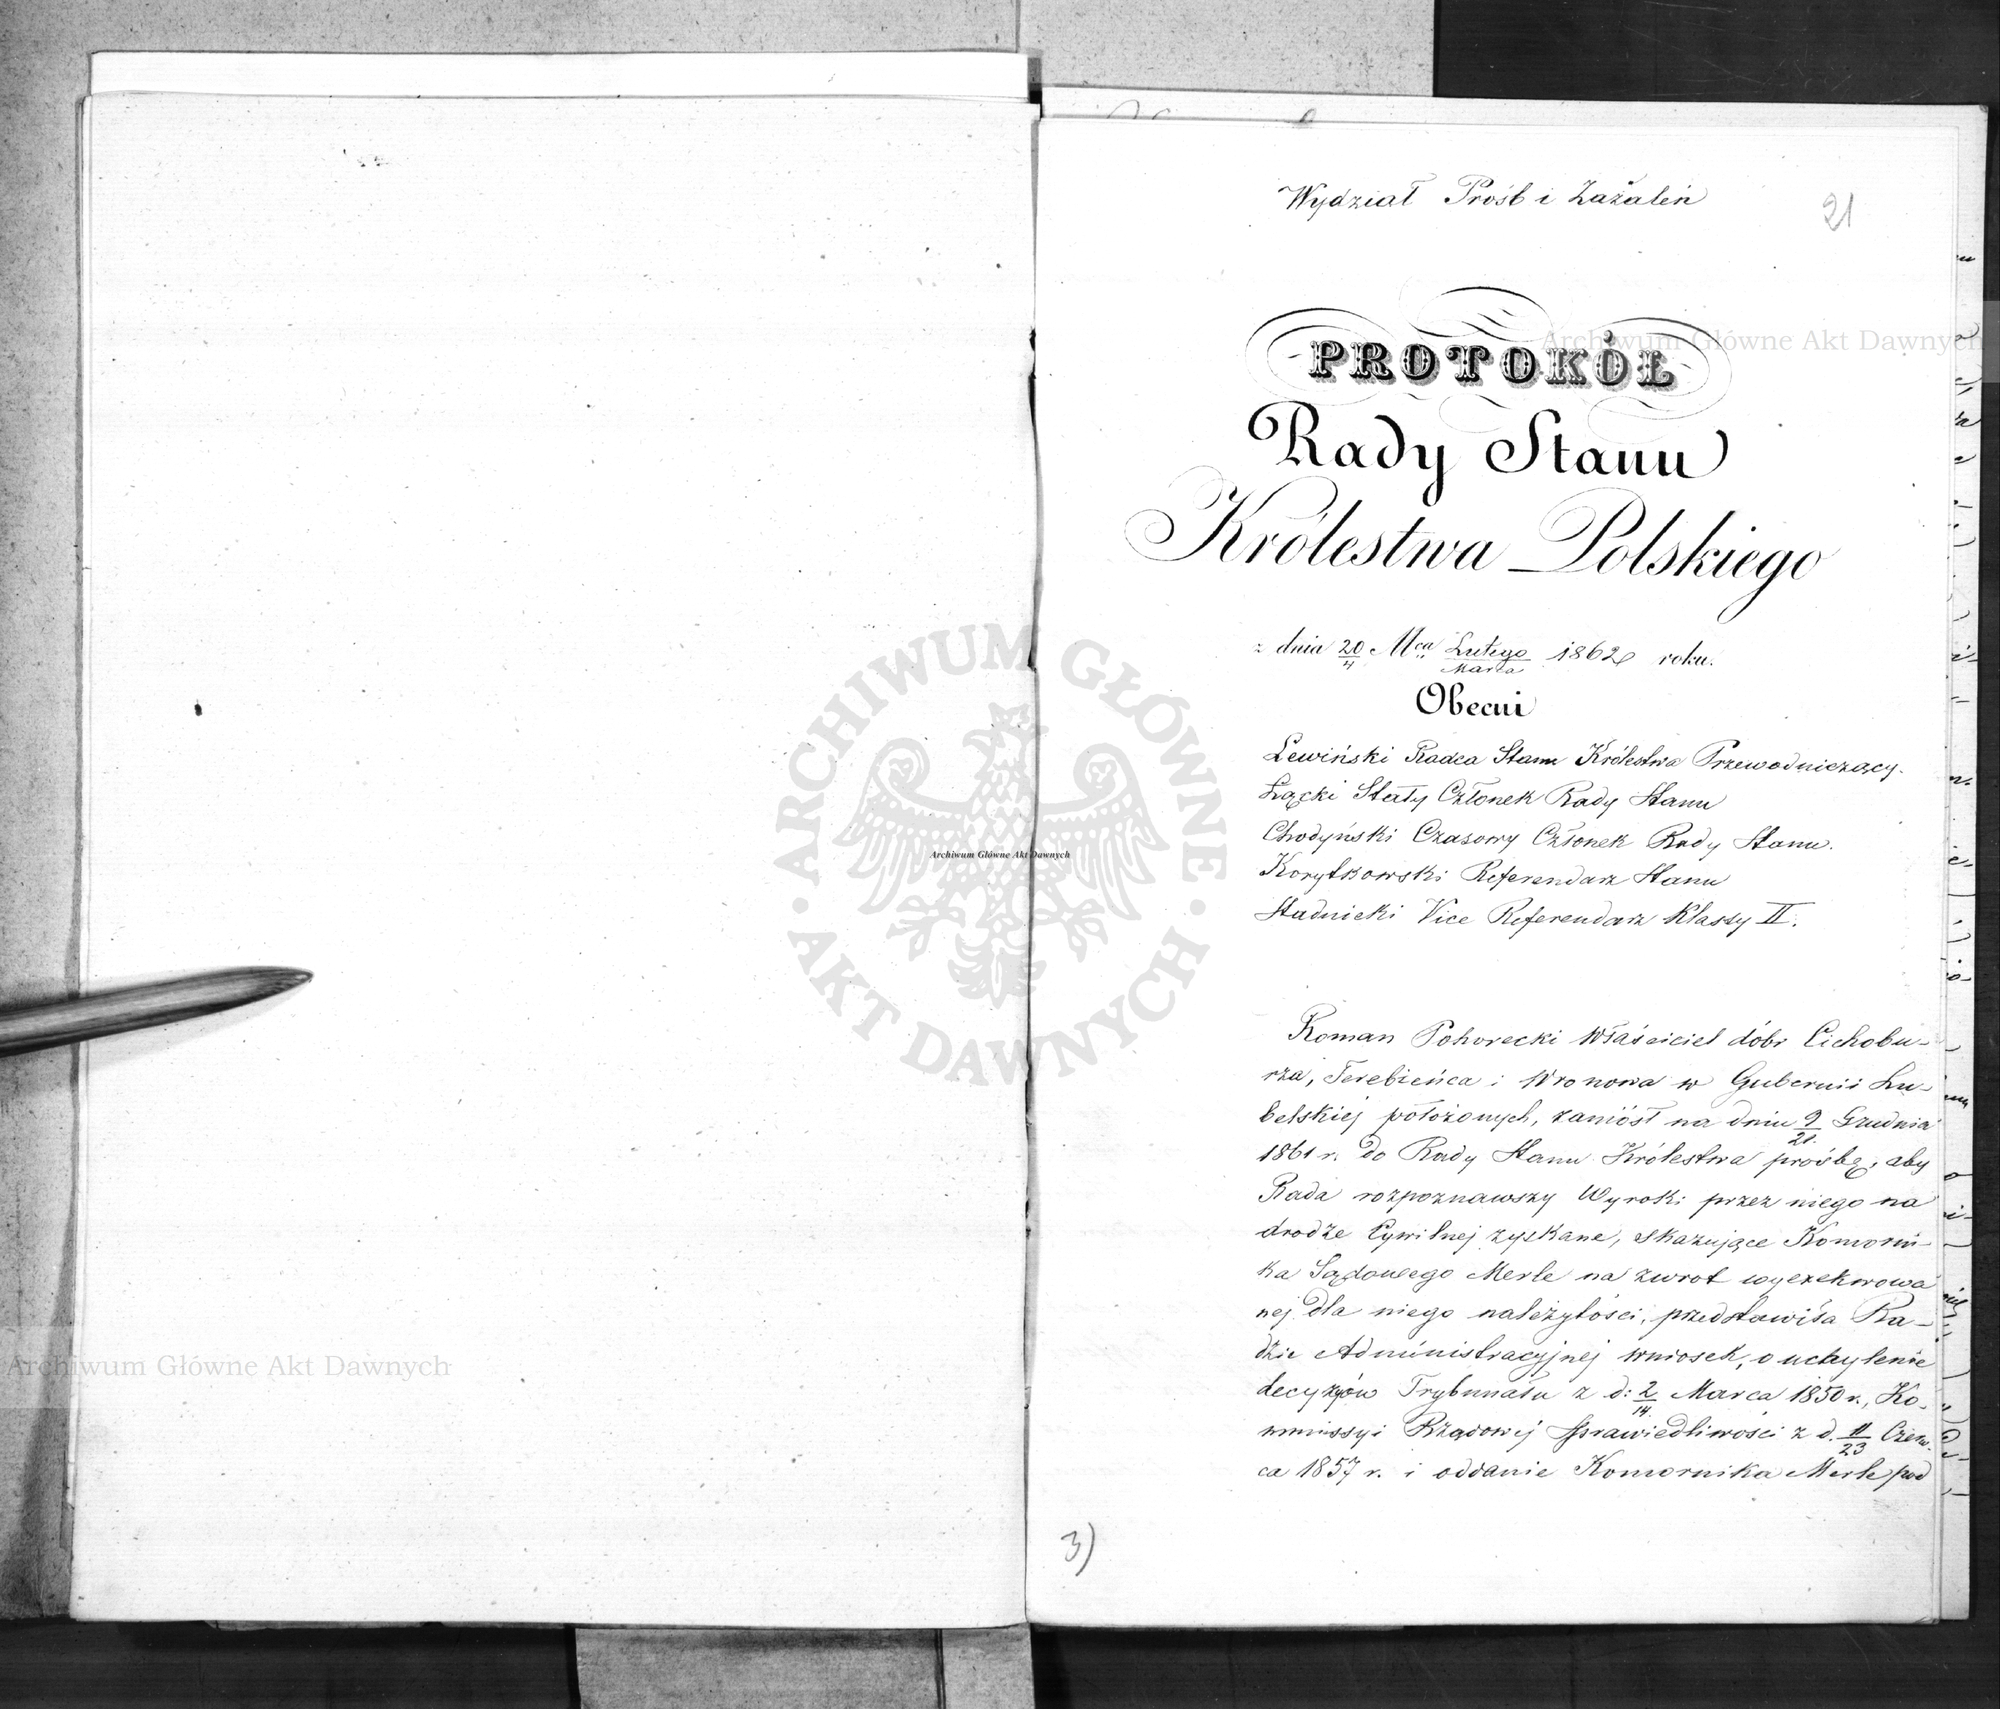 Wydział Prośb i Zażaleń
21
PROTOKÓŁ
Rady Stanu
Królestwa Polskiego
z dnia 20/4 Mca Lutego/Marca 1862 roku.
Obecni
Lewiński Radca Stanu Królestwa Przewodniczący.
Łącki Stały Członek Rady Stanu
Chodyński Czasowy Członek Rady Stanu.
Korytkowski Referendarz Stanu
Studnicki Vice Referendarz Klassy II.
Roman Pohorecki Właściciel dóbr Cichobu-
rza, Terebieńca i Wronowa w Gubernii Lu-
belskiej położonych, zaniósł na dniu 9/21 Grudnia
1861 r. do Rady Stanu Królestwa prośbę, aby
Rada rozpoznawszy Wyroki przez niego na
drodze Cywilnej zyskane, skazujące Komorni-
ka Sądowego Merle na zwrot wyexekwowa
nej dla niego należytości, przedstawiła Ra-
dzie Administracyjnej wniosek, o uchylenie
decyzyów Trybunału z d: 2/14 Marca 1850 r., Ko-
mmissyi Rządowej Sprawiedliwości z d. 11/23 Czerw-
ca 1857 r. i oddanie Komornika Merle pod
3)
Archiwum Główne Akt Dawnych
ARCHIWUM GŁÓWNE
AKT DAWNYCH
Archiwum Główne Akt Dawnych
Archiwum Główne Akt Dawnych